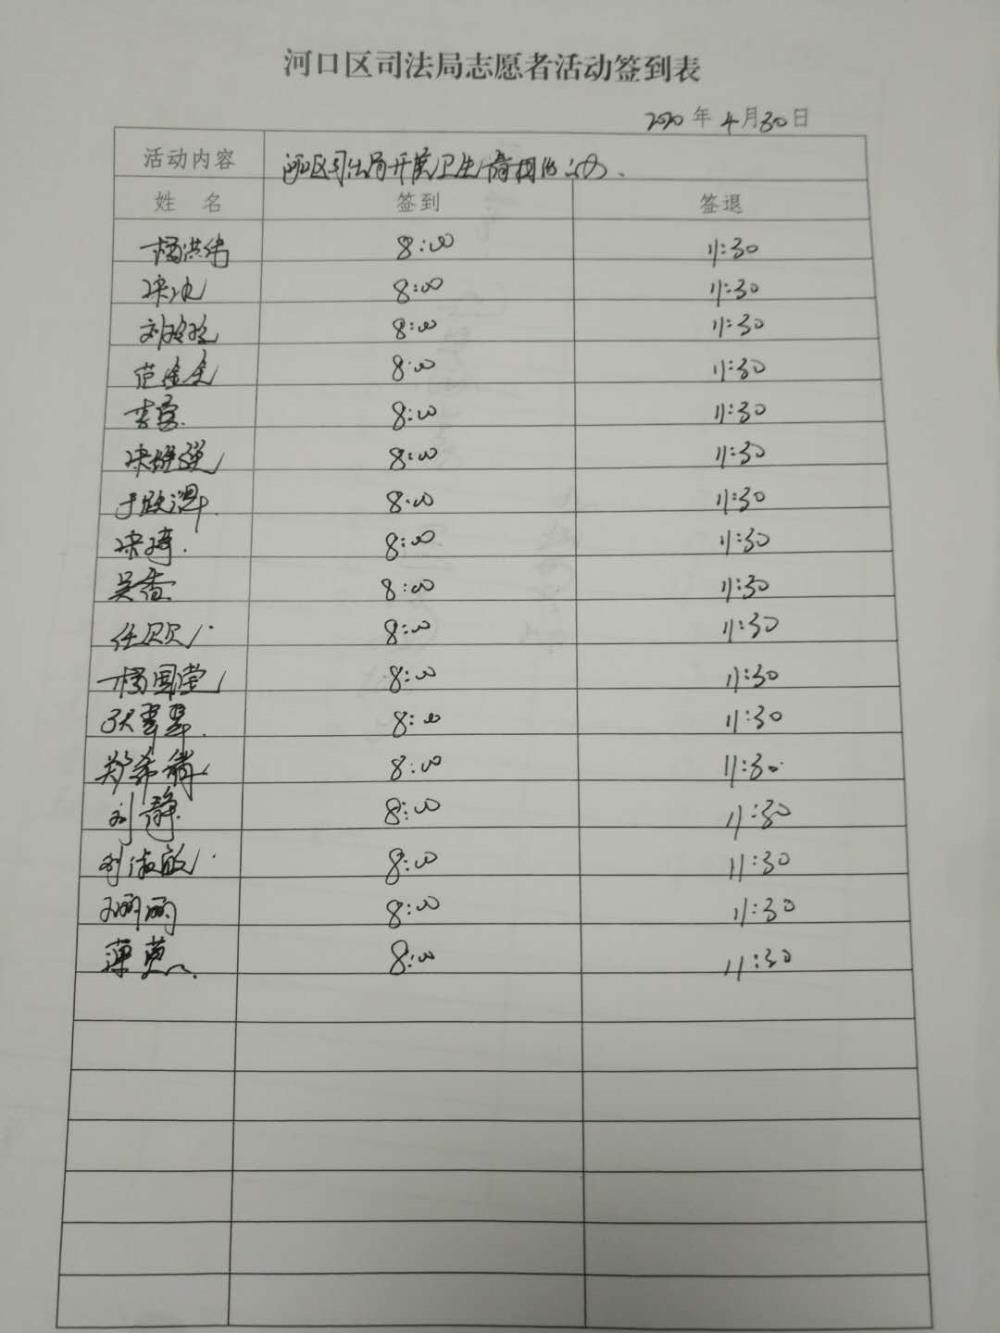 河口区司法局志愿者活动签到表
2020年4月30日
活动内容 河口区司法局开展卫生清扫活动.
姓 名 签到 签退
杨洪伟 8:00 11:30
宋冰 8:00 11:30
刘玲玲 8:00 11:30
范金金 8:00 11:30
李 8:00 11:30
宋继强 8:00 11:30
于跃 8:00 11:30
宋琦. 8:00 11:30
吴香 8:00 11:30
任贝贝 8:00 11:30
杨国堂 8:00 11:30
张翠翠. 8:00 11:30
郑希 8:00 11:30
刘静. 8:00 11:30
刘淑敏 8:00 11:30
丽丽 8:00 11:30
薄 8:00 11:30